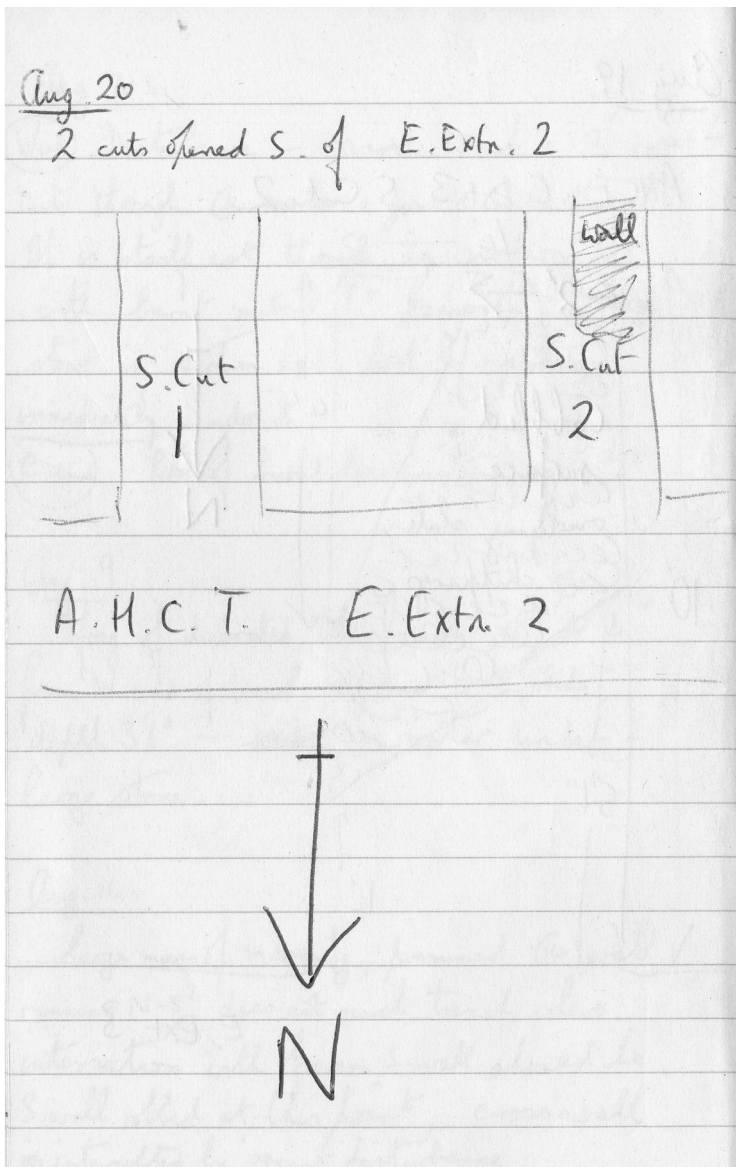 Aug. 20
2 cuts opened S. of E. Extn. 2
wall
S. Cut
1
S. Cut
2
A.H.C.T. E. Extn. 2
N